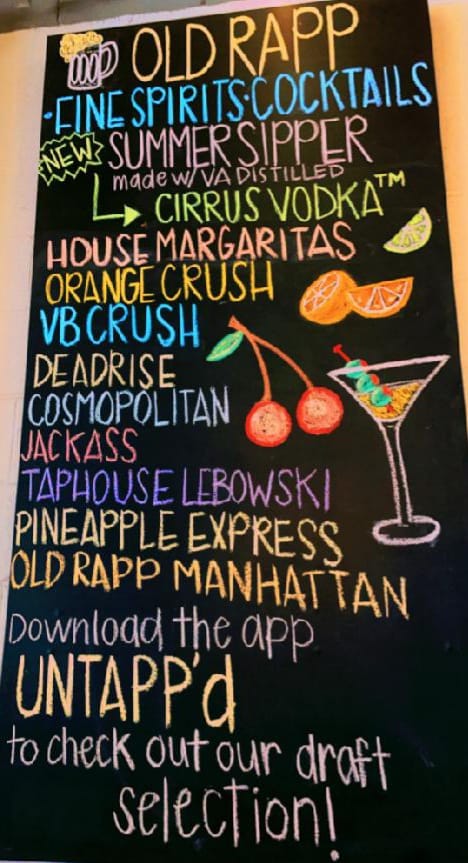 OLD RAPP
·FINE SPIRITS·COCKTAILS
NEW SUMMER SIPPER
made w/ VA DISTILLED
CIRRUS VODKA™
HOUSE MARGARITAS
ORANGE CRUSH
VB CRUSH
DEADRISE
COSMOPOLITAN
JACKASS
TAPHOUSE LEBOWSKI
PINEAPPLE EXPRESS
OLD RAPP MANHATTAN
Download the app
UNTAPP'd
to check out our draft
selection!